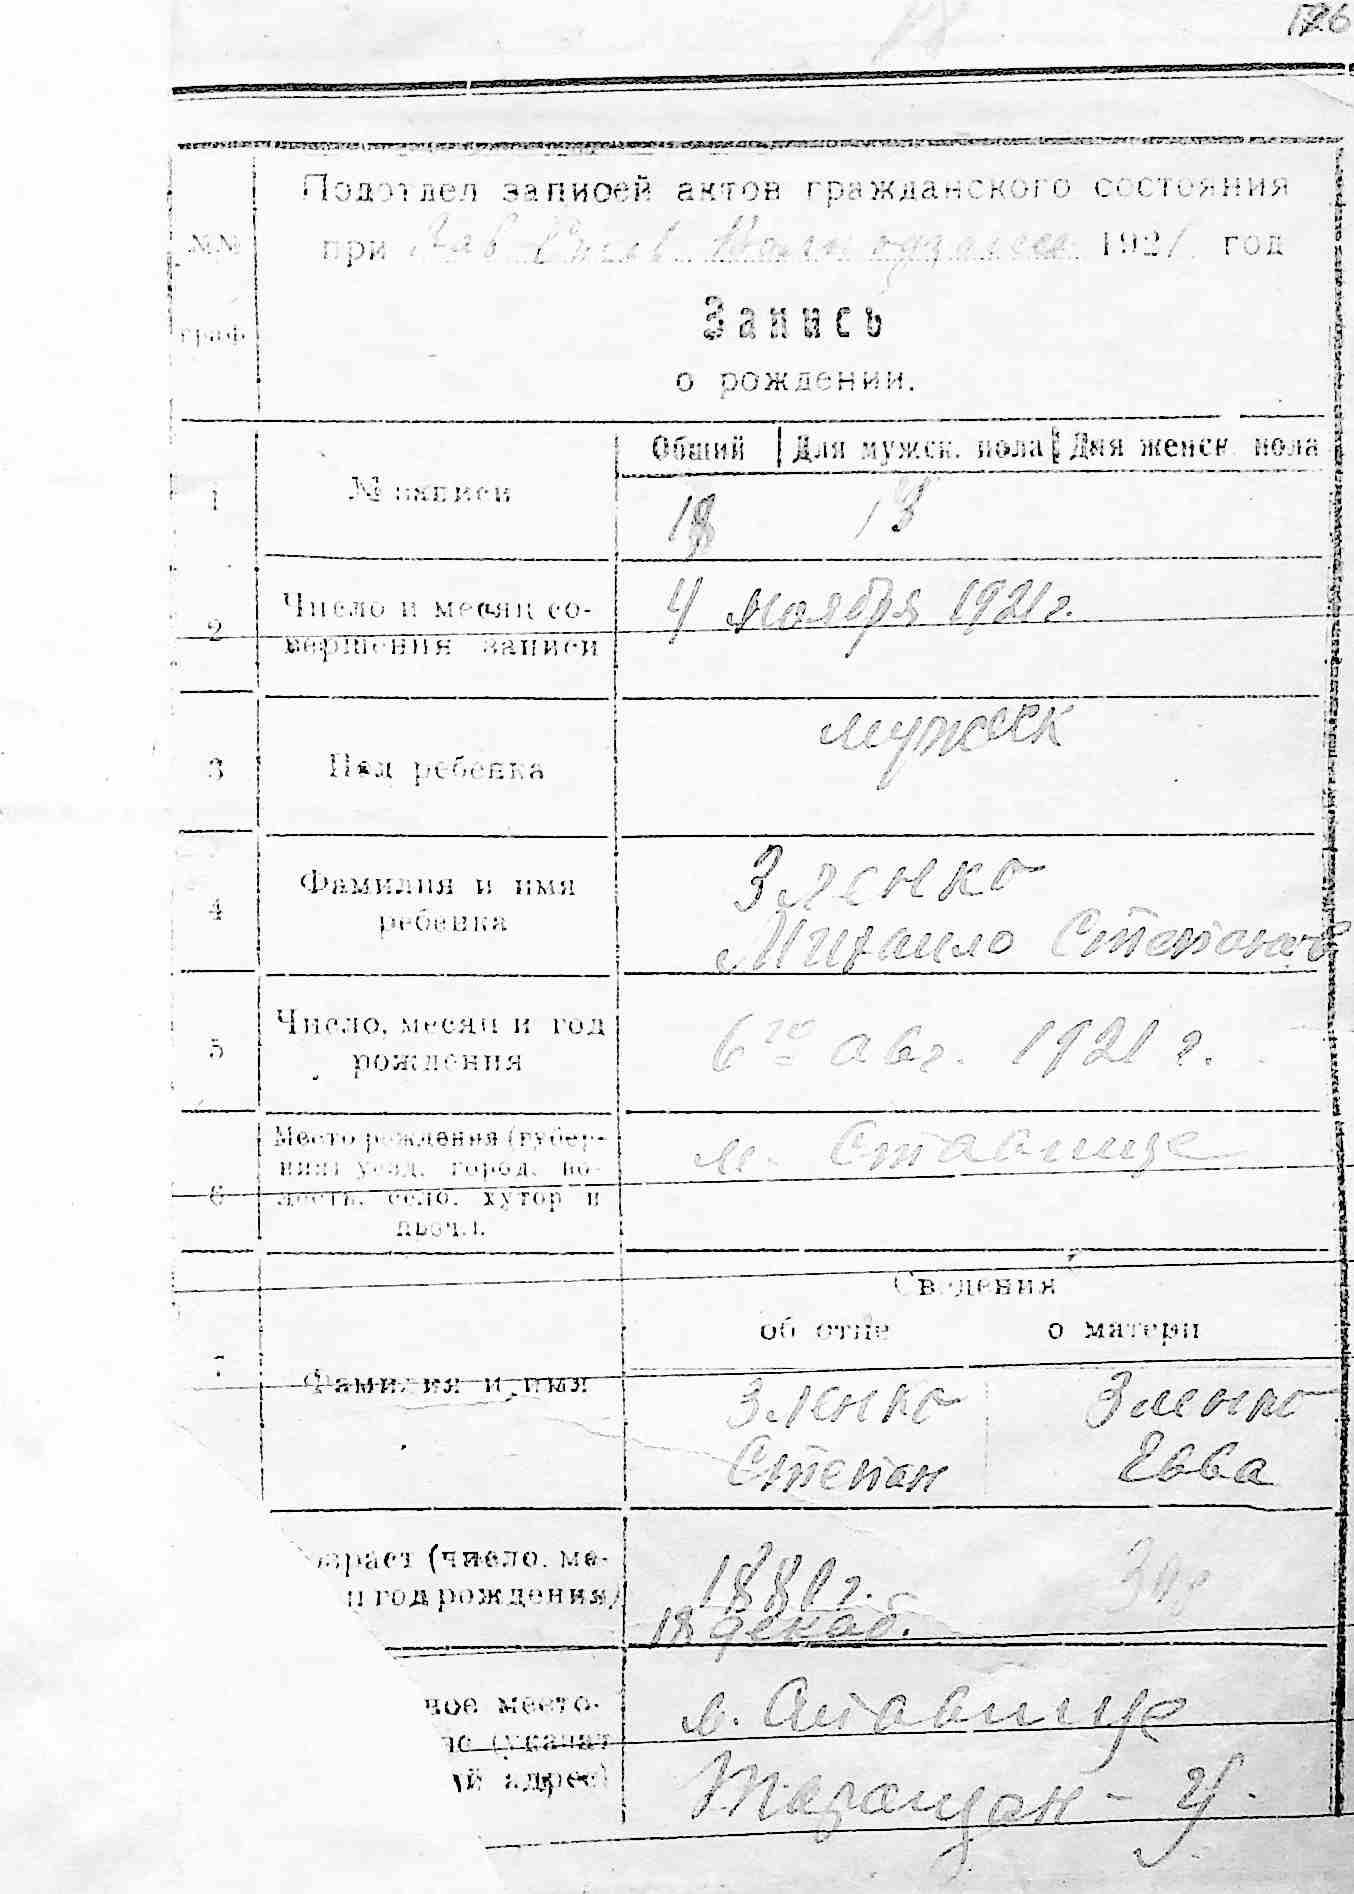 126
Подотдел записей актов гражданского состояния
№№ при 1921 год
граф
Запись
о рождении.
Общий Для мужск. пола Для женск. пола
1 № записи 18 13
2 Число и месяц со-
вершения записи
4 ноября 1921 г.
3 Пол ребенка мужеск
4 Фамилия и имя
ребенка
Зленко
Михаило Степанов
5 Число, месяц и год
рождения
6го авг. 1921 г.
6 Место рождения (губер-
ния, уезд, город, во-
лость, село, хутор и
проч.).
м. Ставище
Сведения
об отце о матери
7 Фамилия и имя
Зленко Зленко
Степан Евва
зраст (число, ме-
и год рождения)
188 г.
18 декаб.
ное место-
ие (указат
ый адрес)
м. Ставище
Таращан - у.